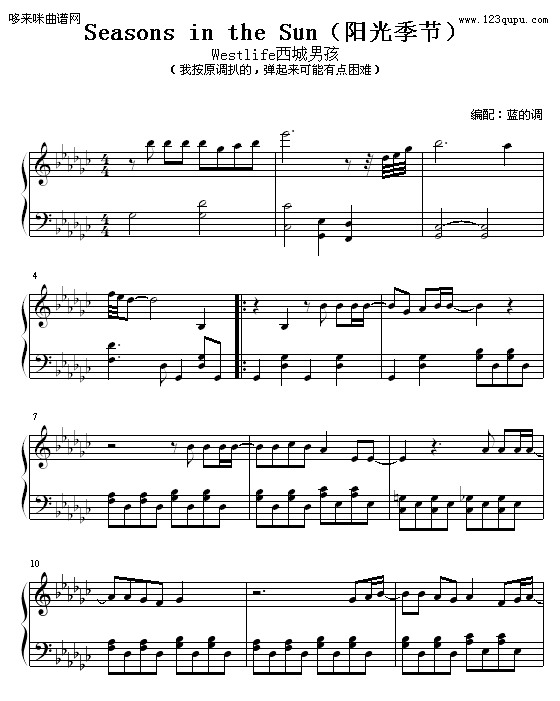 哆来咪曲谱网
www.123qupu.com
Seasons in the Sun（阳光季节）
Westlife西城男孩
（我按原调扒的，弹起来可能有点困难）
编配：蓝的调
4
4
4
4
4
7
10